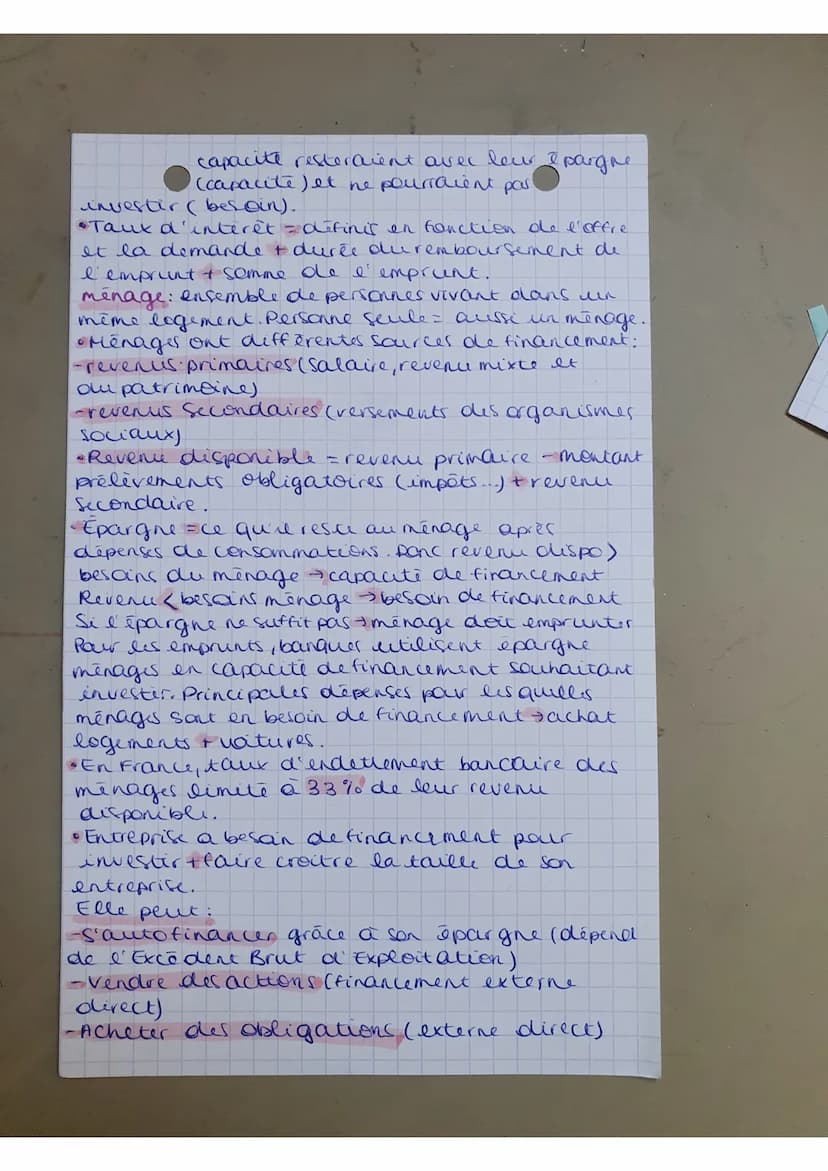 capacité resteraient avec leur épargne
(capacité) et ne pourraient pas
investir (besoin).
•Taux d'intérêt = définit en fonction de l'offre
et la demande + durée du remboursement de
l'emprunt + somme de l'emprunt.
ménage: ensemble de personnes vivant dans un
même logement. Personne seule = aussi un ménage.
•Ménages ont différentes sources de financement:
-revenus primaires (salaire, revenu mixte et
du patrimoine)
-revenus secondaires (versements des organismes
sociaux)
•Revenu disponible = revenu primaire - montant
prélèvements obligatoires (impôts...) + revenu
secondaire.
•Épargne = ce qu'il reste au ménage après
dépenses de consommations. Donc revenu dispo >
besoins du ménage → capacité de financement
Revenu < besoins ménage → besoin de financement
Si l'épargne ne suffit pas → ménage doit emprunter
Pour les emprunts, banques utilisent épargne
ménages en capacité de financement souhaitant
investir. Principales dépenses pour lesquelles
ménages sont en besoin de financement → achat
logements + voitures.
•En France, taux d'endettement bancaire des
ménages limité à 33% de leur revenu
disponible.
•Entreprise a besoin de financement pour
investir + faire croître la taille de son
entreprise.
Elle peut:
-S'autofinancer grâce à son épargne (dépend
de l'Excédent Brut d'Exploitation)
-Vendre des actions (financement externe
direct)
-Acheter des obligations (externe direct)